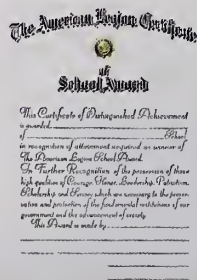 The American Legion Certificate
of
School Award
This Certificate of Distinguished Achievement
is awarded
of (School)
in recognition of attainment acquired as winner of
The American Legion School Award.
In Further Recognition of the possession of those
high qualities of Courage, Honor, Leadership, Patriotism,
Scholarship and Service which are necessary to the preser-
vation and protection of the fundamental institutions of our
government and the advancement of society.
This Award is made by